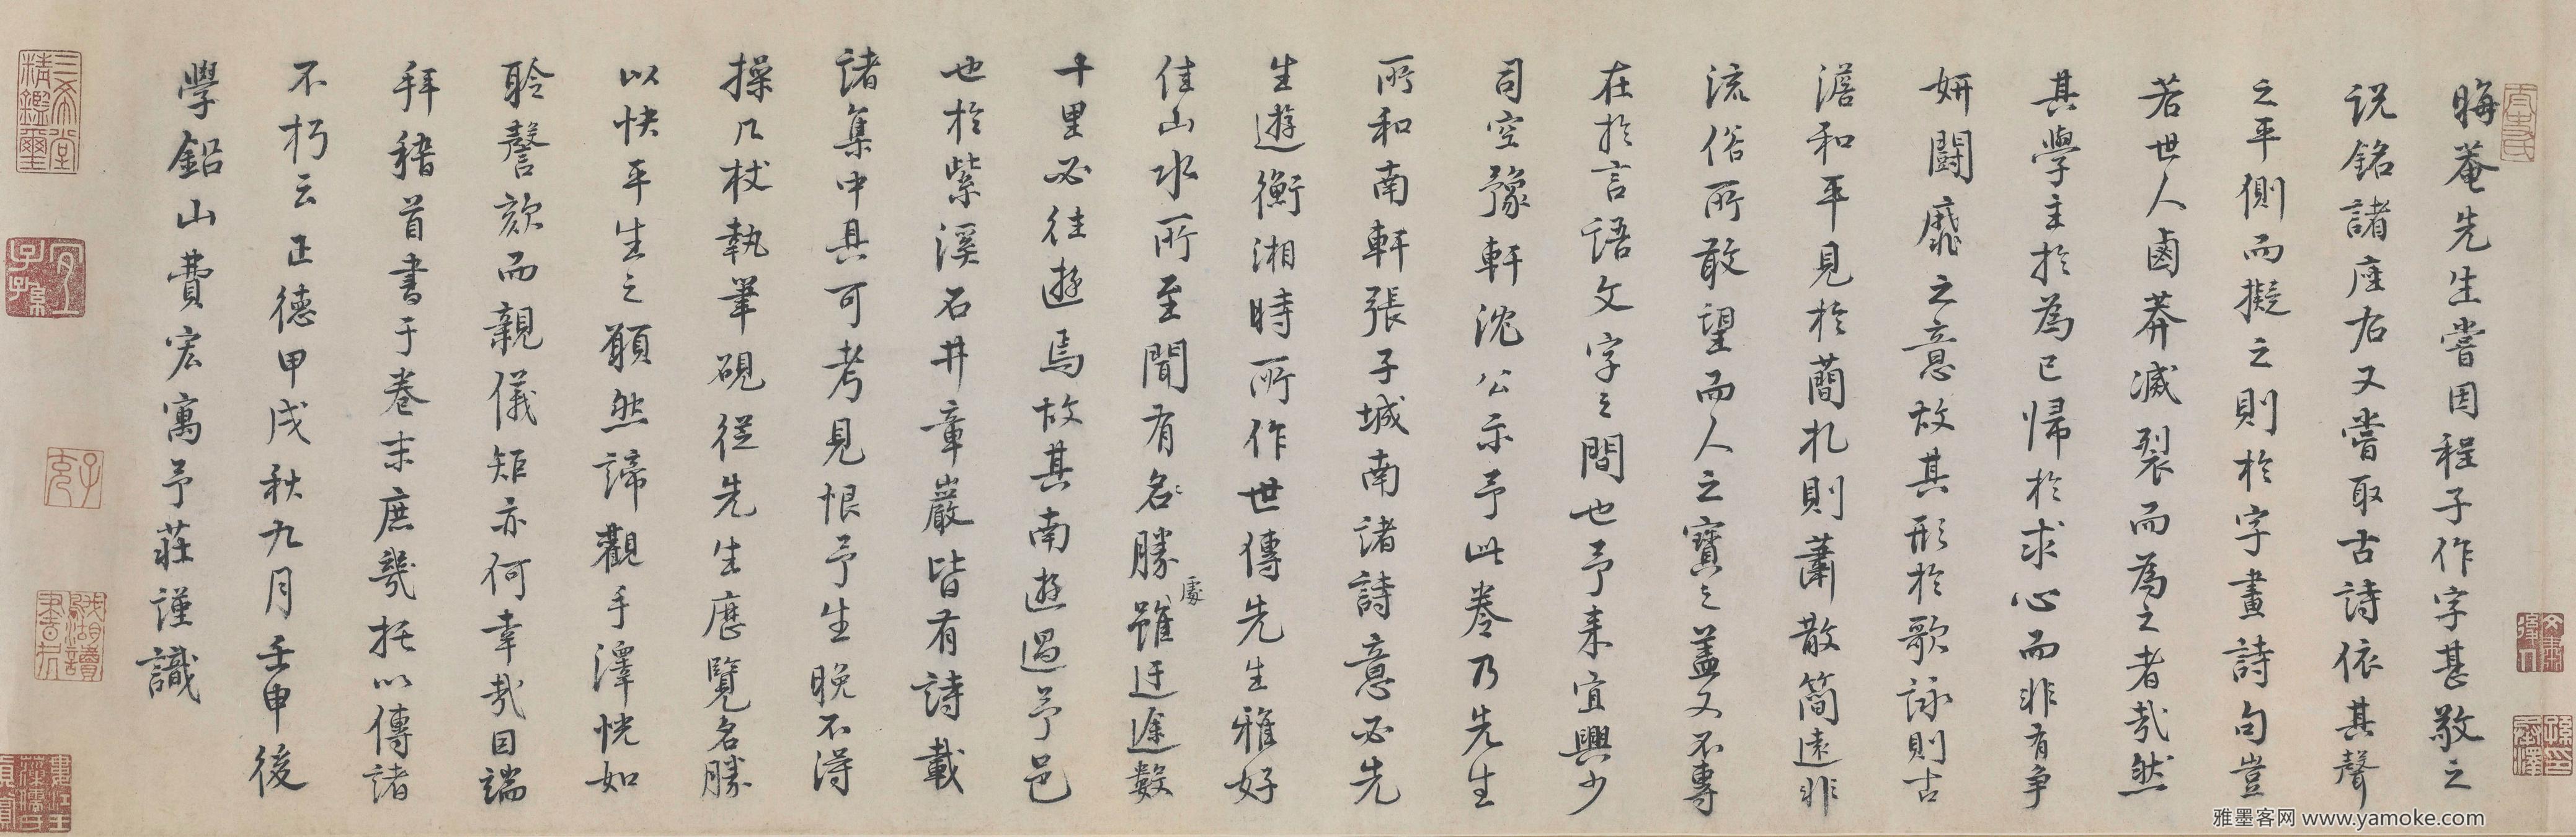 晦菴先生嘗因程子作字甚敬之
説銘諸座右又嘗取古詩依其聲
之平側而擬之則於字畫詩句豈
若世人鹵莽滅裂而為之者哉然
其學主於為已歸於求心而非有争
妍鬪靡之意故其形於歌詠則古
澹和平見於蕳札則蕭散簡遠非
流俗所敢望而人之寳之蓋又不專
在於言語文字之間也予来宜興少
司空豫軒沈公示予此卷乃先生
所和南軒張子城南諸詩意必先
生遊衡湘時所作世傳先生雅好
佳山水所至聞有名勝處雖迂途數
十里必往遊焉故其南遊過予邑
也於紫溪石井章巖皆有詩載
諸集中具可考見恨予生晚不得
操几杖執筆硯從先生歴覽名勝
以快平生之願然諦觀手澤恍如
聆謦欬而親儀矩亦何幸哉因端
拜稽首書于卷末庶幾托以傳諸
不朽云正德甲戌秋九月壬申後
學鉛山費宏寓予莊謹識
三希堂精鑑璽
宜子孫
雅墨客网 www.yamoke.com